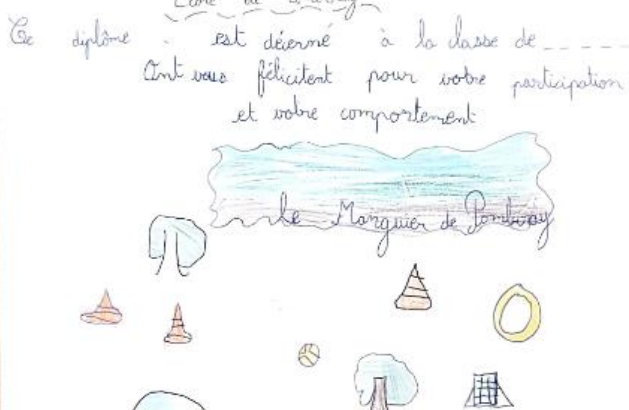 Ce diplôme est décerné à la classe de
Ont vous félicitent pour votre participation
et votre comportement
Le Marquier de